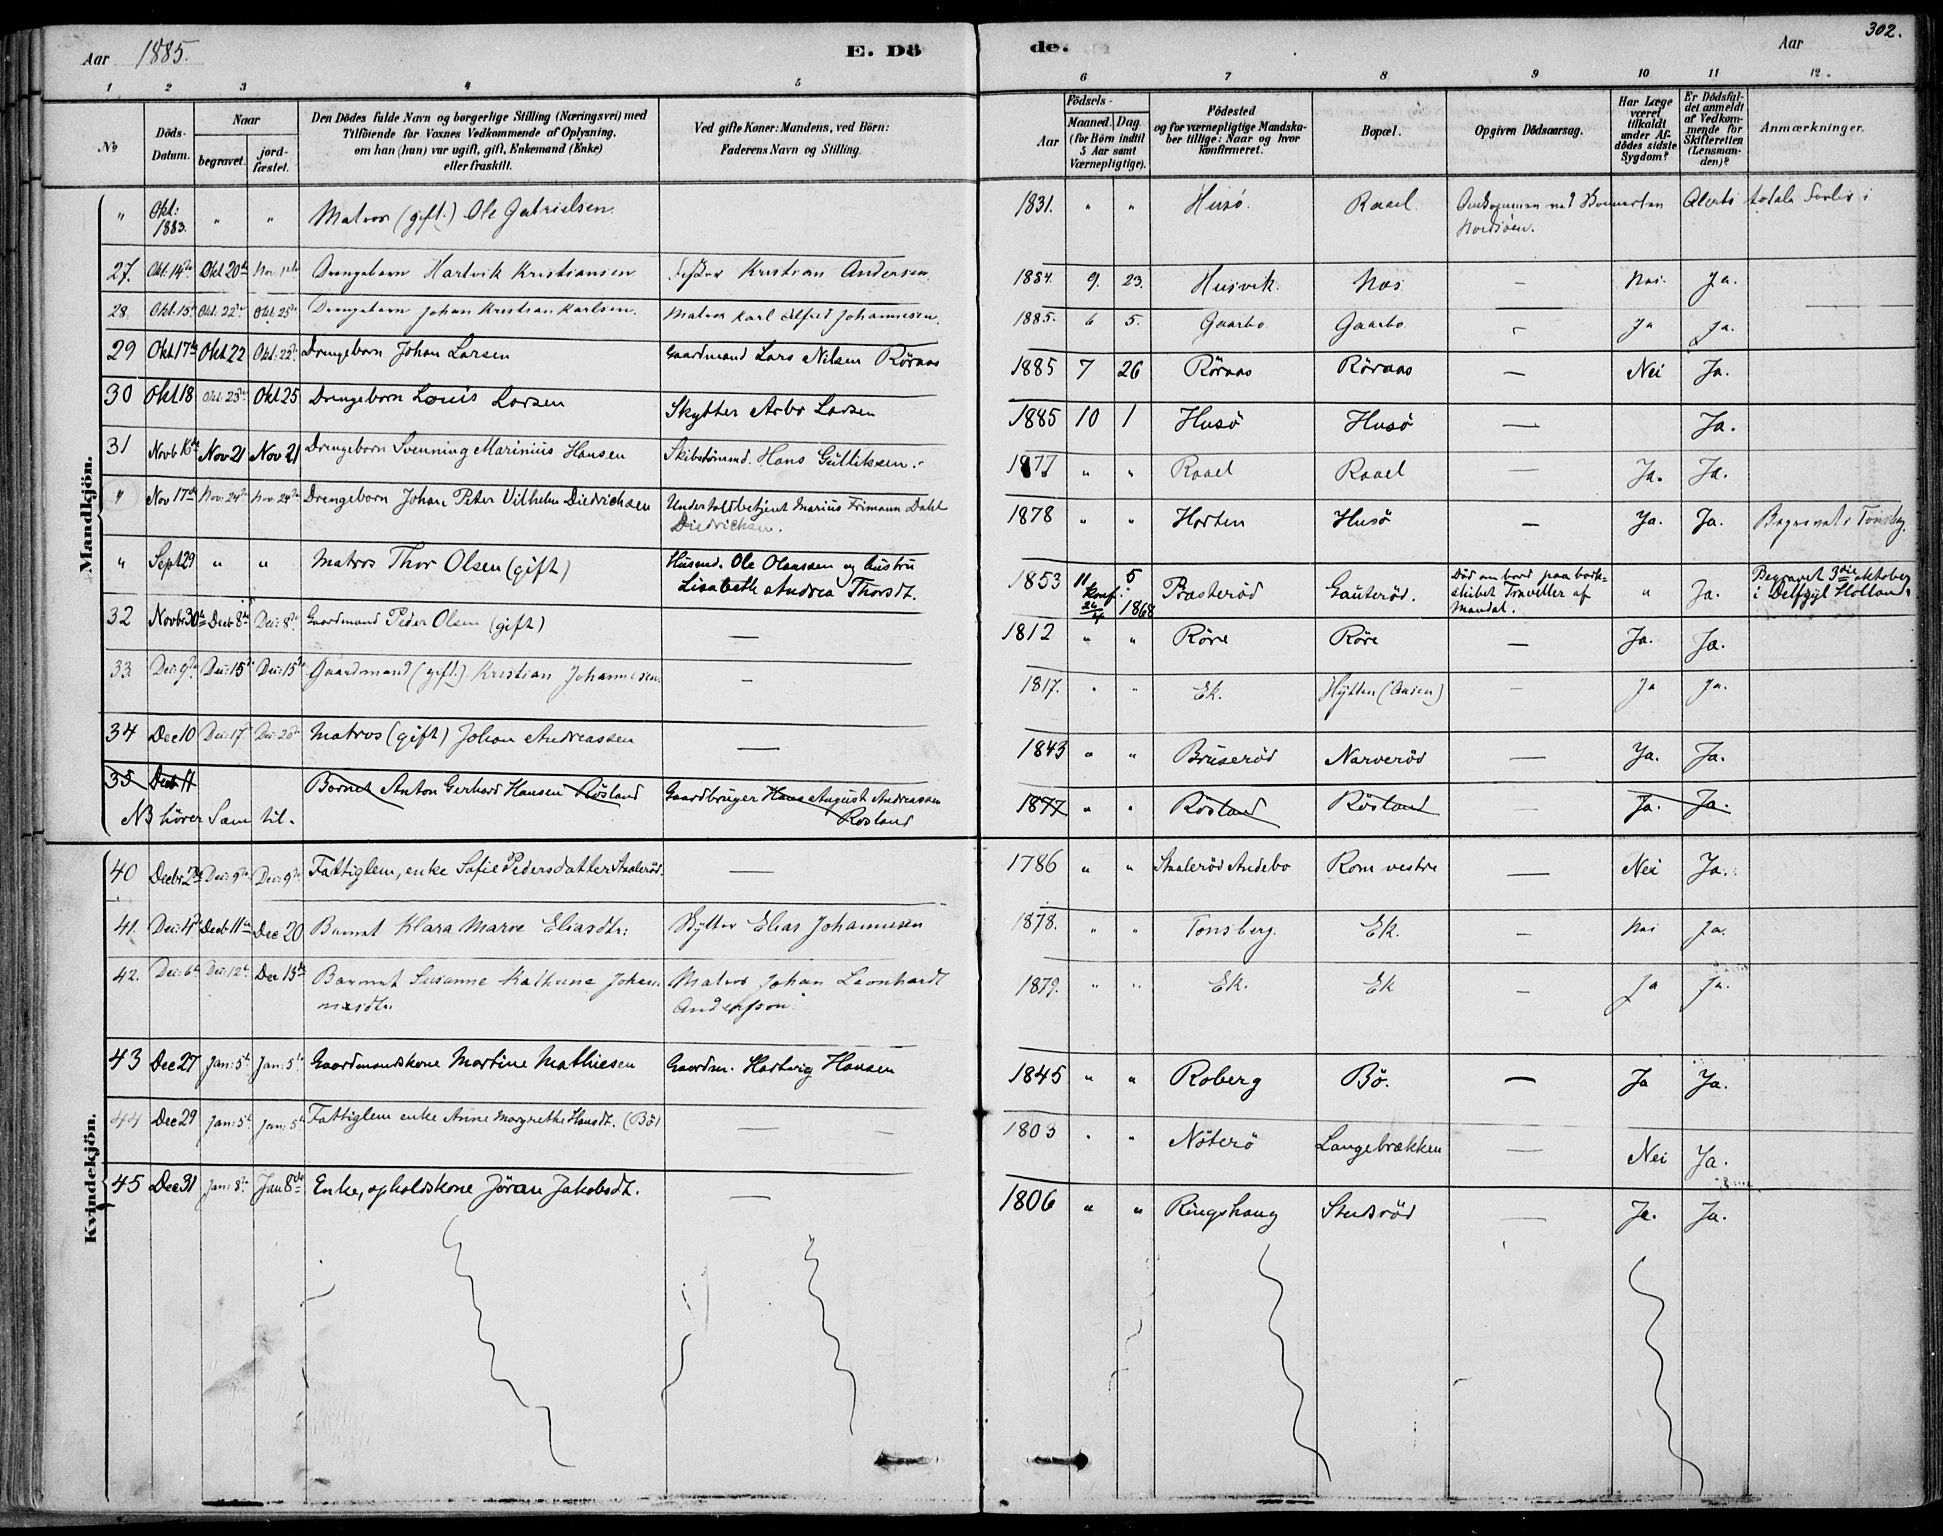 Aar 1885. E. Dö de. Aar 302.
1 2 3 4 5 6 7 8 9 10 11 12.
No
Döds-Datum.
Naar
begravet.
jord-fæstet.
Den Dödes fulde Navn og borgerlige Stilling (Næringsvei) med
Tilföiende for Voxnes Vedkommende af Oplysning,
om han (hun) var ugift, gift, Enkemand (Enke)
eller fraskilt.
Ved gifte Koner: Mandens, ved Börn:
Faderens Navn og Stilling.
Födsels-
Aar
Maaned. Dag
(for Börn indtil
5 Aar samt
Værnepligtige).
Födested
og for værnepligtige Mandska-
ber tillige: Naar og hvor
konfirmeret.
Bopæl.
Opgiven Dödsaarsag.
Har Læge
været
tilkaldt
under Af-
dödes sidste
Sygdom?
Er Dödsfal-
det anmeldt
af Vedkom-
mende for
Skifteretten
(Lensman-
den)?
Anmærkninger.
Mandkjön.
" Okt: 1883. " " Matros (gift.) Ole Gabrielsen. 1831. " " Husö. Raael. Omkommen ved Skonnerten Alerts totale Forlis i
Nordsöen.
27. Okt. 14de Okt 20de Drengebarn Hartvik Kristiansen Kristian Andersen. 1884. 9. 23. Husvik. Næs. — Nei. Ja.
28. Okt. 15de Okt. 22de Okt. 25de Drengebarn Johan Kristian Karlsen. Matros Karl Alfred Johannesen. 1885. 6 5. Gaarbo Gaarbo - Ja Ja.
29 Okt 17de Okt 22 Okt. 22de Drengebarn Johan Larsen Gaardmand Lars Nilsen Röraas 1885 7 26 Röraas Röraas — Nei Ja.
30 Okt 18 Okt 25de Okt 25 Drengebarn Louis Larsen Skytter Arbo Larsen 1885 10 1 Husö Husö — Ja.
31 Novb 16de Nov 21 Nov 21 Drengebarn Svenning Marinius Hansen Skibstömmd. Hans Gulliksen. 1877 " " Raael Raael — Ja. Ja.
" Nov 17de Nov. 24de Nov. 24de Drengebarn Johan Peter Vilhelm Diedrichsen Undertoldbetjent Marius Frimann Dahl
Diedrichsen. 1878 " " Horten Husö — Ja. Ja. Begravet i Tönsberg.
" Sept 29 " " Matros Thor Olsen (gift) Husmd. Ole Olaussen og hustru
Lisabeth Andrea Thorsdt. 1853 11 5 Konf. 26/4 1868 Præsteröd Gauteröd. Död om bord paa bark-
skibet Traveller af
Mandal. " Ja. Begravet 3die oktober
i Delfzyl Holland.
32 Novbr 30te Decb 8de Dec: 8de Gaardmand Peder Olsen (gift) — 1812 " " Röre Röre — Ja. Ja.
33. Dec: 9de Dec: 15de Dec: 15de Gaardmand (gift.) Kristian Johannesen. — 1817. " " Ek. Hytten (Aasen) — Ja Ja.
34 Dec 10 Dec: 17de Dec: 20de Matros (gift) Johan Andreassen — 1843 " " Bruseröd Narveröd — Ja. Ja.
35 Decb 11 Barnet Anton Gerhard Hansen Rösland Gaardbruger Hans August Andreassen
Rösland 1877 " " Rösland Rösland Ja. Ja.
NB hörer Sem til.
Kvindekjön.
40 Decbr 2de Dec: 9de Dec: 9de Fattiglem, enke Sofie Pedersdatter Staaleröd. — 1786 " " Staaleröd Andebo Rom vestre — Nei Ja.
41. Dec: 4de Decb 11te Dec 20 Barnet Klara Marie Eliasdtr: Skytter Elias Johannesen 1878. " " Tønsberg. Ek. — Nei Ja.
42. Dec: 6te Dec: 12te Dec 13de Barnet Susanne Kathrine Johan-
nesdtr. Matros Johan Leonhardt
Andersson. 1879. " " Ek. Ek — Ja Ja.
43 Dec 27 Jan: 5te Jan: 5te Gaardmandskone Martine Mathiesen Gaardm. Hartvig Hansen 1845 " " Roberg Bö. — Ja Ja.
44 Dec 29 Jan: 5te Jan: 5te Fattiglem enke Anne Margrethe Hansdt. (Bö) — 1803 " " Nöterö Langebrækken — Nei Ja.
45 Dec 31 Jan: 8de Jan 8de Enke, opholdskone Jöran Jakobsdt. — 1806 " " Ringshaug Stubröd — Ja. Ja.